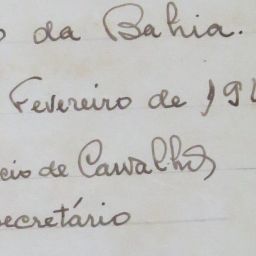 o da Bahia.
Fevereiro de 19
eio de Carvalho
secretário